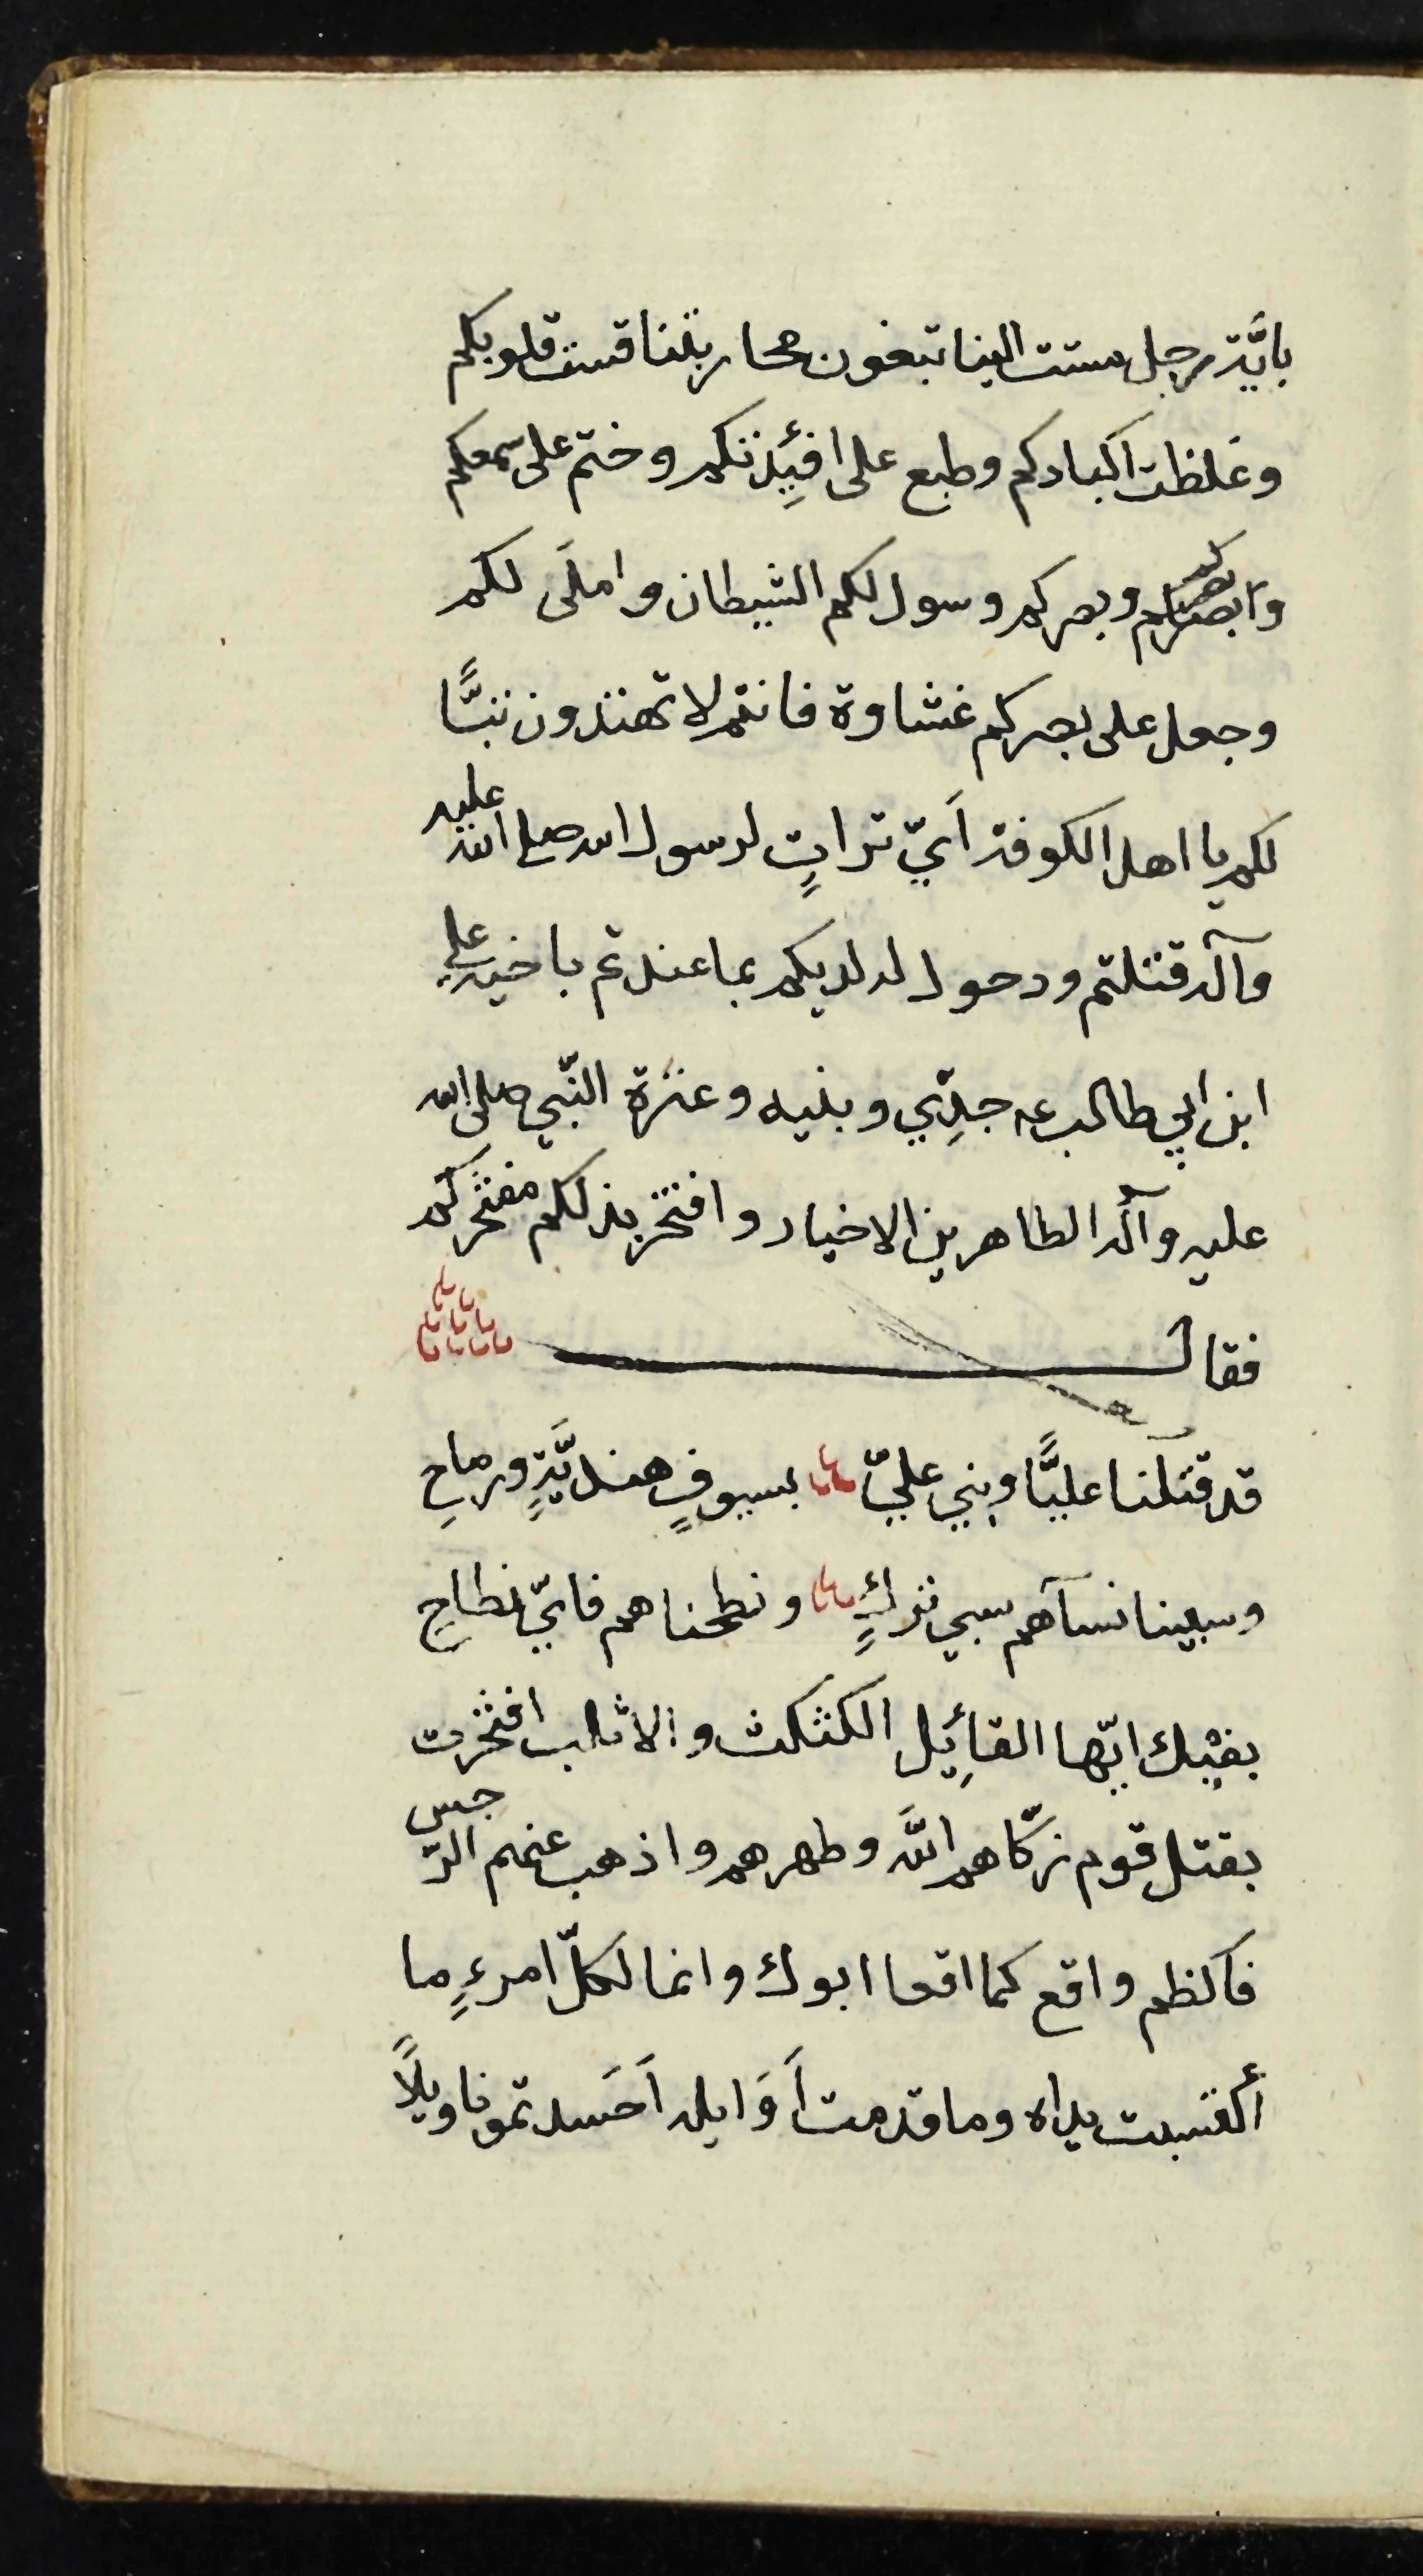 بايّة رجل مستت الينا تبغون محاربتنا قست قلوبكم
وغلظت اكبادكم وطبع على افئِدتكم وختم على سمعكم
وبصركم وسول لكم الشيطان واملَى لكم
وجعل على بصركم غشاوة فانتم لا تهتدون تبًّا
لكم يا اهل الكوفة اَيّ تراتٍ لرسول الله صلى الله عليه
وآله قتلتم ودحول له لديكم بما عندتم باخيه علي
ابن ابي طالب عه جدِّي وبنيه وعترة النّبي صلى الله
عليه وآله الطاهرين الاخيار وافتخر بذلكم مفتخركم
فقال
قد قتلنا عليًّا وبني عليّ بسيوفٍ هنديَّةٍ ورماحِ
وسبينا نسآهم سبي تركٍ ونطحناهم فايّ نطاحِ
بفيْك ايّها القائِل الكثكث والاثلب افتخرت
بقتل قوم زكّاهم اللّه وطهرهم واذهب عنهم الرّجس
فاكظم واقع كما اقعا ابوك وانما لكلّ امرءٍ ما
أكتسبت يداه وما قدمت اَوَايله اَحَسدتمونا ويلاً